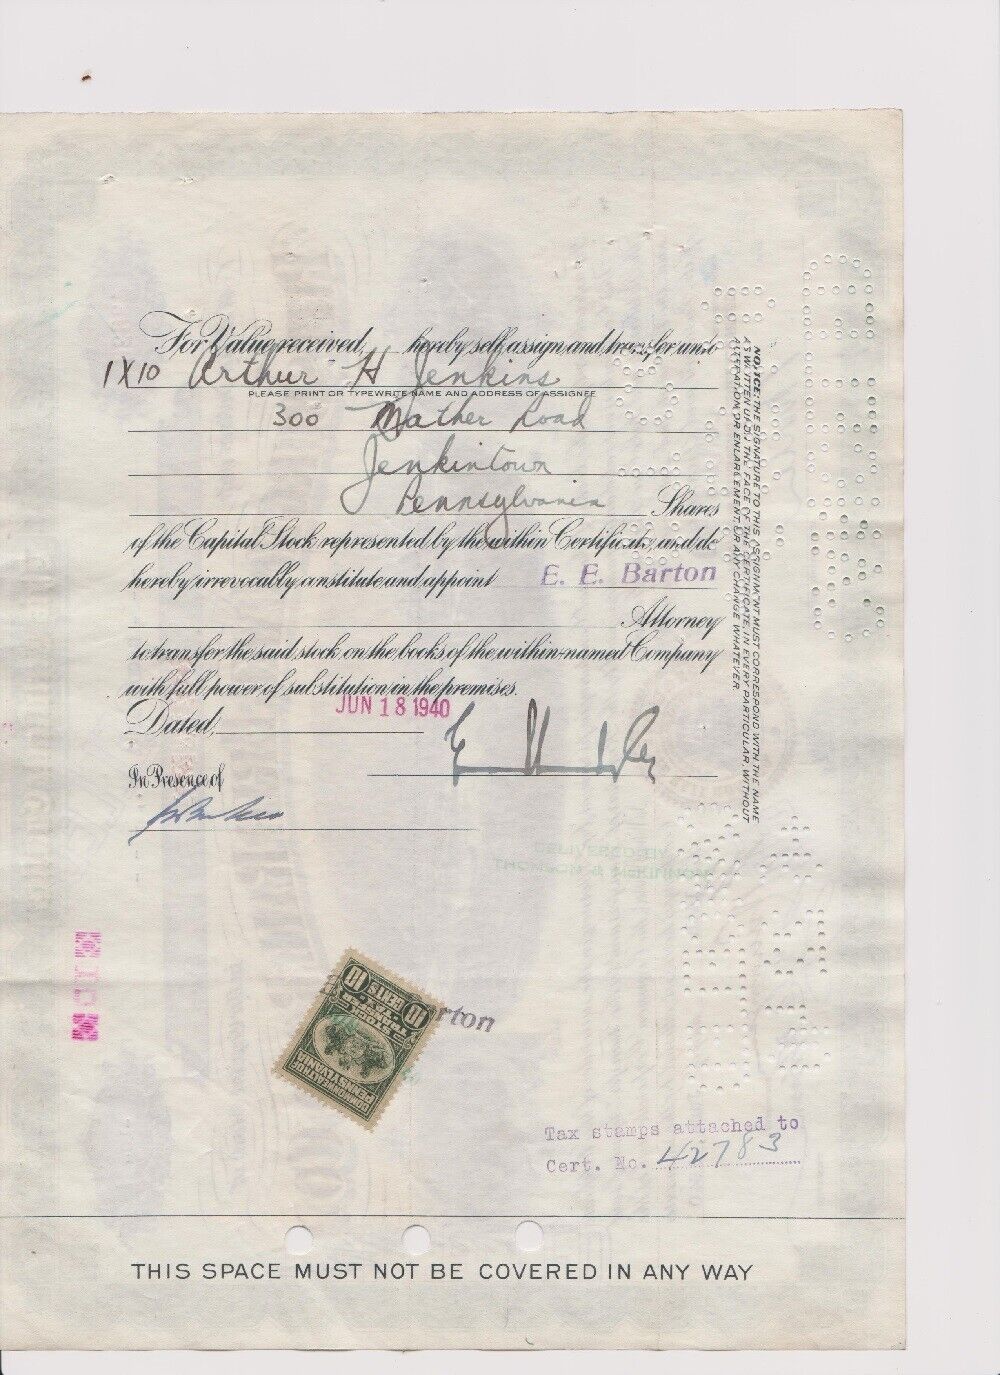 For Value received, hereby sell, assign and transfer unto
1X10 Arthur H Jenkins
PLEASE PRINT OR TYPEWRITE NAME AND ADDRESS OF ASSIGNEE
300 Mather Road
Jenkintown
Pennsylvania Shares
of the Capital Stock represented by the within Certificate, and do
hereby irrevocably constitute and appoint E. E. Barton
Attorney
to transfer the said stock on the books of the within-named Company
with full power of substitution in the premises.
Dated, JUN 18 1940
In Presence of
NOTICE: THE SIGNATURE TO THIS ASSIGNMENT MUST CORRESPOND WITH THE NAME
AS WRITTEN UPON THE FACE OF THE CERTIFICATE, IN EVERY PARTICULAR, WITHOUT
ALTERATION OR ENLARGEMENT OR ANY CHANGE WHATEVER
DELIVERED BY
THOMSON & McKINNON
rton
10 CENTS 10
STOCK
TRANSFER
TAX
COMMONWEALTH
PENNSYLVANIA
Tax stamps attached to
Cert. No. 42783
THIS SPACE MUST NOT BE COVERED IN ANY WAY